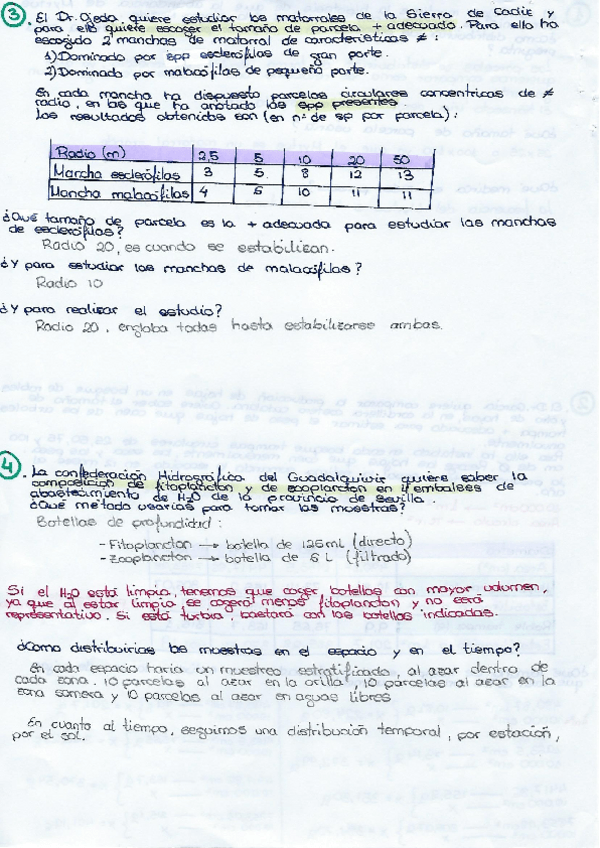 3. El Dr. Ojeda, quiere estudiar los matorrales de la Sierra de Cadiz y
para ello quiere escoger el tamaño de parcela + adecuado. Para ello ha
escogido 2 manchas de matorral de características ≠ :
1) Dominado por spp esclerófilas de gran porte.
2) Dominado por malacófilas de pequeño porte.
En cada mancha ha dispuesto parcelas circulares concentricas de ≠
radio, en las que ha anotado las spp presentes
Los resultados obtenidos son (en nº de sp por parcela):
Radio (m) 2,5 5 10 20 50
Mancha esclerófilas 3 5 8 12 13
Mancha malacófilas 4 6 10 11 11
¿Qué tamaño de parcela es la + adecuada para estudiar las manchas
de esclerófilas?
Radio 20, es cuando se estabilizan.
¿Y para estudiar las manchas de malacófilas?
Radio 10
¿Y para realizar el estudio?
Radio 20, engloba todas hasta estabilizarse ambas.
4. La confederación Hidrográfica del Guadalquivir quiere saber la
composición de fitoplancton y de zooplancton en embalses de
abastecimiento de H2O de la provincia de Sevilla.
¿Qué metodo usarias para tomar las muestras?
Botellas de profundidad:
- Fitoplancton → botella de 125ml (directo)
- Zooplancton → botella de 6 L (filtrado)
Si el H2O está limpia, tenemos que coger botellas con mayor volumen,
ya que al estar limpia, se cogerá menos fitoplancton y no será
representativo. Si está turbia, bastará con las botellas indicadas.
¿Como distribuirias las muestras en el espacio y en el tiempo?
En cada espacio haria un muestreo estratificado, al azar dentro de
cada zona. 10 parcelas al azar en la orilla, 10 parcelas al azar en la
zona somera y 10 parcelas al azar en aguas libres
En cuanto al tiempo, seguimos una distribución temporal, por estación,
por el sol.